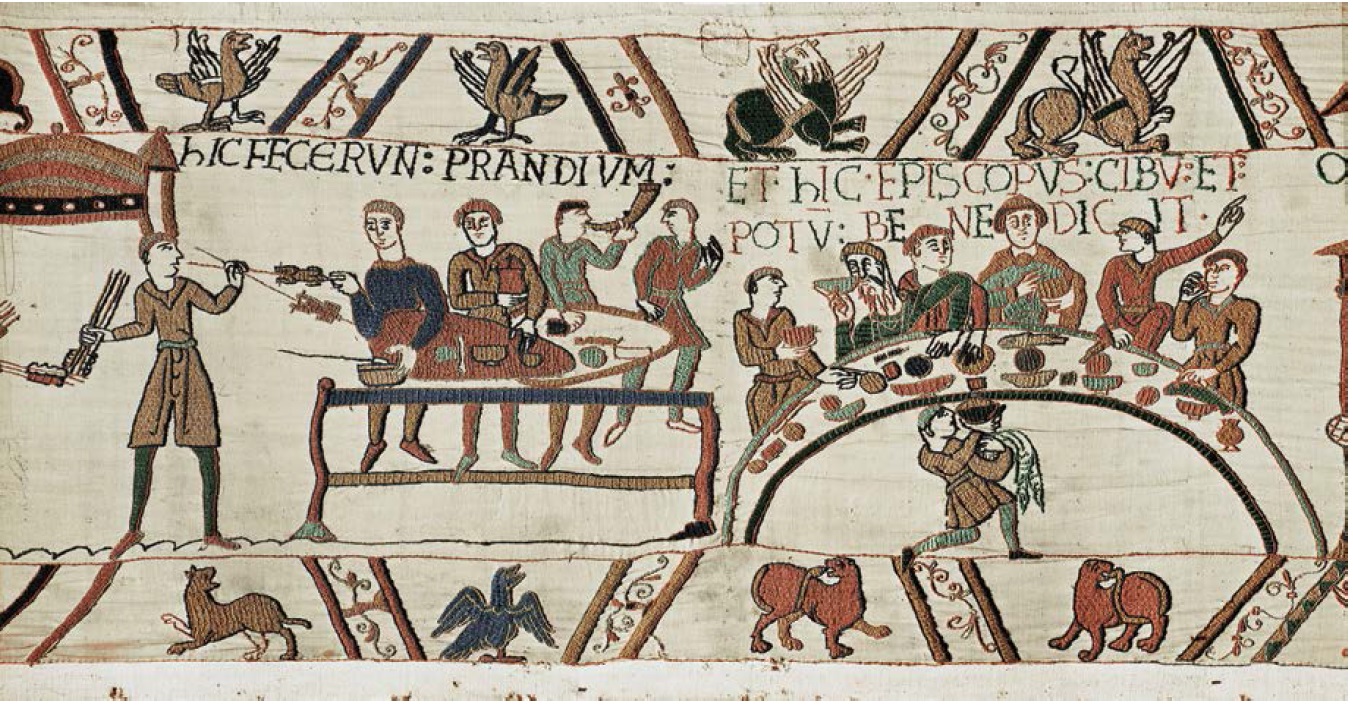 hIC FECERVN: PRANDIVM:
ET· hIC·EPISCOPVS:CIBV̅:ET:
POTV̅: BE NE DIC IT·